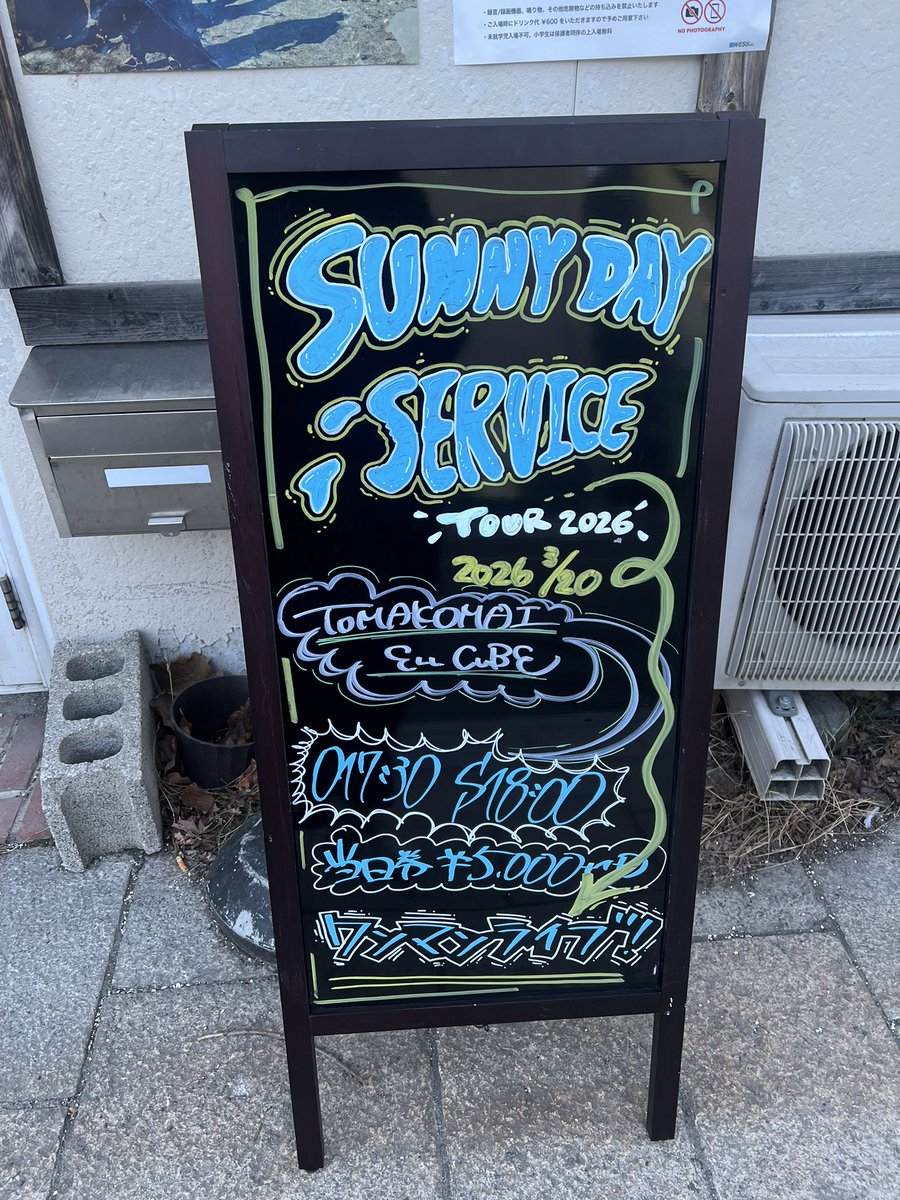 ・録音/録画機器、鳴り物、その他危険物などの持ち込みを禁止いたします
・ご入場時にドリンク代 ¥600 をいただきますので予めご用意下さい
・未就学児入場不可、小学生は保護者同伴の上入場無料
NO PHOTOGRAPHY
WESS
SUNNY DAY
SERVICE
TOUR 2026
2026 3/20
TOMAKOMAI
ELL CUBE
O17:30 S18:00
当日券 ¥5,000
ワンマンライブ!!